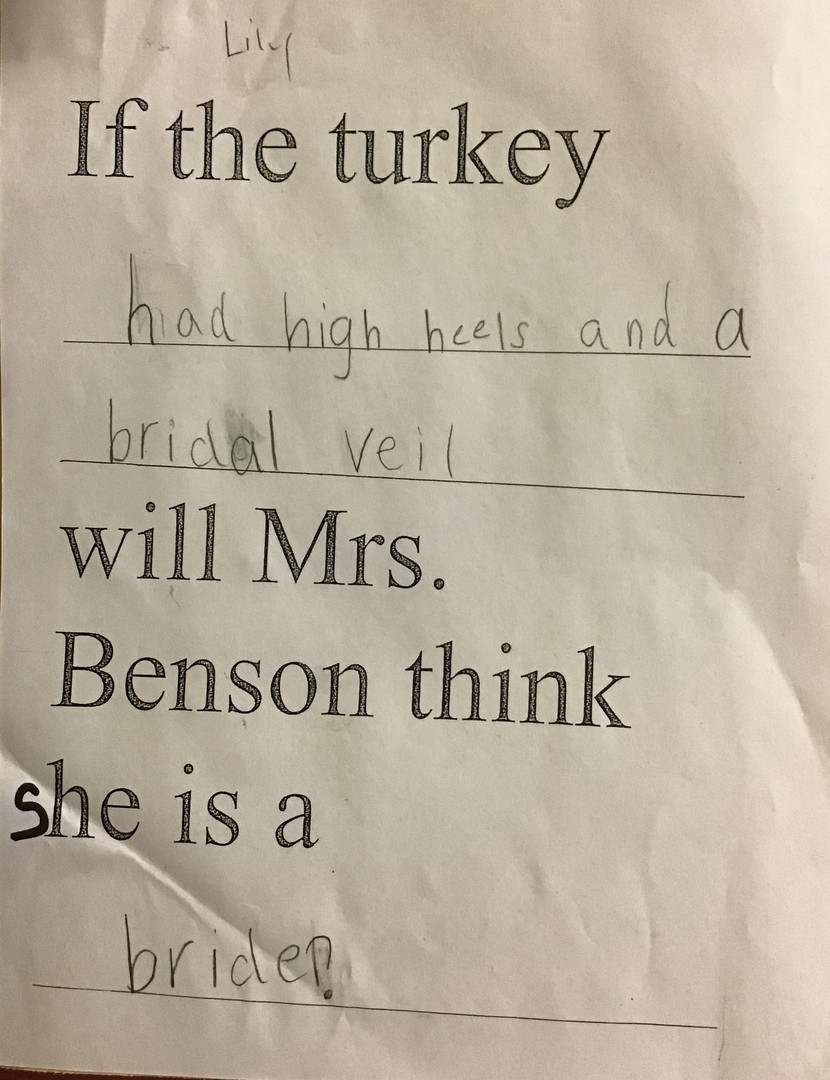 Lily
If the turkey
had high heels and a
bridal veil
will Mrs.
Benson think
she is a
bride?